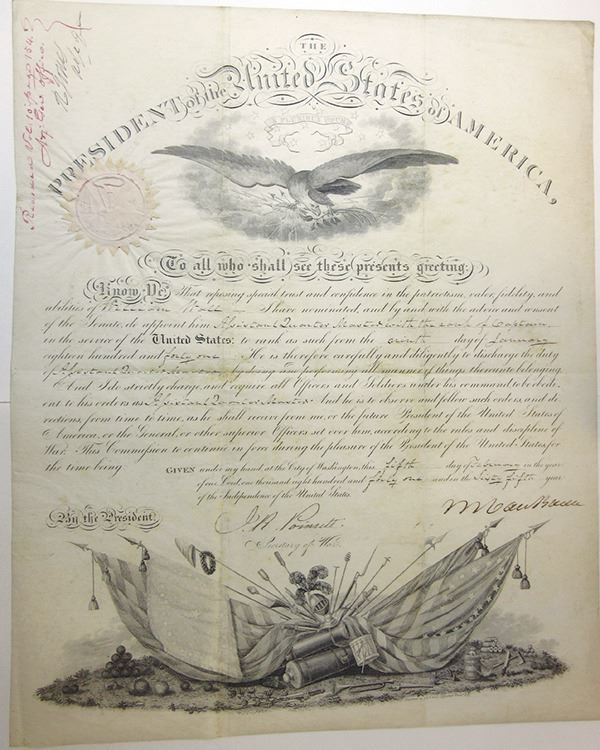 THE
PRESIDENT of the United States of AMERICA,
E PLURIBUS UNUM
To all who shall see these presents greeting:
Know Ye, That reposing special trust and confidence in the patriotism, valor, fidelity, and
abilities of William Wall I have nominated, and by and with the advice and consent
of the Senate, do appoint him Assistant Quarter Master with the rank of Captain
in the service of the United States: to rank as such from the day of January
eighteen hundred and forty one. He is therefore carefully and diligently to discharge the duty
of Assistant Quarter Master by doing and performing all manner of things thereunto belonging.
And I do strictly charge, and require all Officers and Soldiers under his command to be obedi-
ent to his orders as Assistant Quarter Master. And he is to observe and follow such orders, and di-
rections, from time to time, as he shall receive from me, or the future President of the United States of
America, or the General, or other superior Officers set over him, according to the rules and discipline of
War. This Commission to continue in force during the pleasure of the President of the United States for
the time being.
GIVEN under my hand at the City of Washington, this fifth day of February in the year
of our Lord, one thousand eight hundred and forty one and in the Sixty fifth year
of the Independence of the United States.
M Van Buren
By the President,
J. R. Poinsett
Secretary of War.